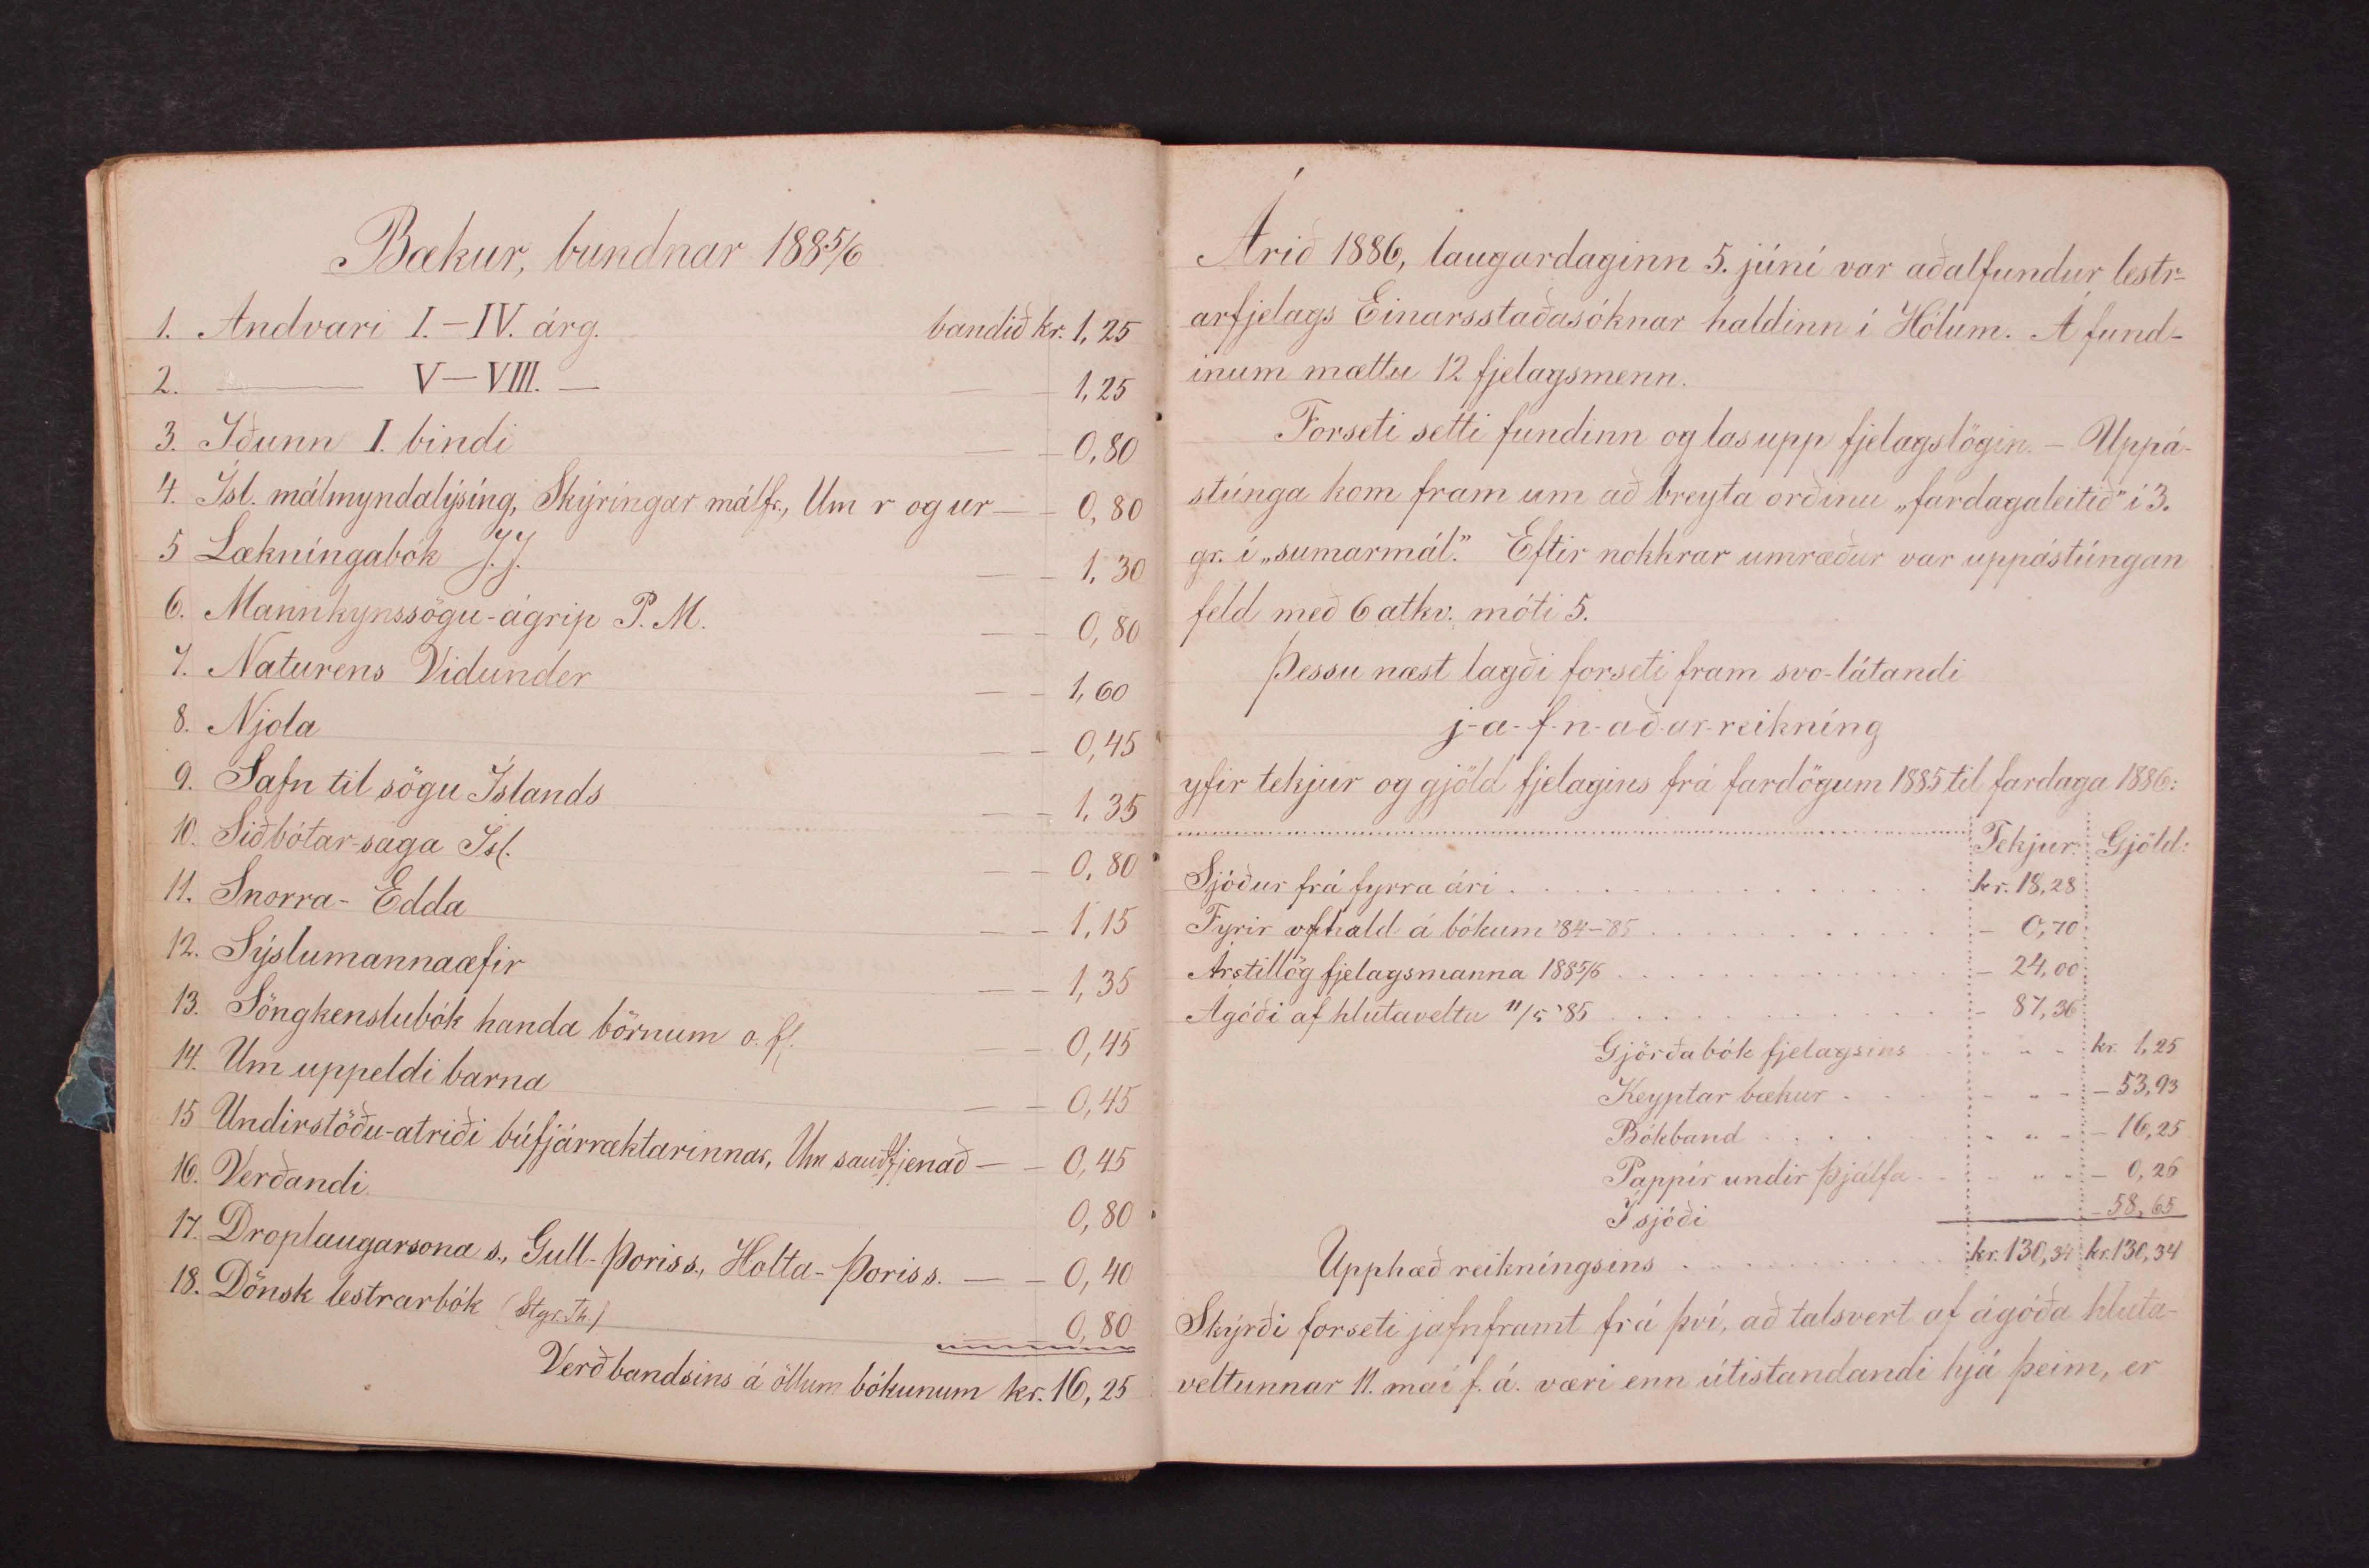 Bækur, bundnar 1885/6
1. Andvari I.-IV. árg. bandið kr. 1,25
2. —— V-VIII. — — - 1,25
3. Iðunn I. bindi — - 0,80
4. Ísl. málmyndalýsíng, Skýríngar málfr., Um r og ur — - 0,80
5 Lækníngabók J.J. — - 1,30
6. Mannkynssögu-ágrip P.M. — - 0,80
7. Naturens Vidunder — - 1,60
8. Njola — - 0,45
9. Safn til sögu Íslands — - 1,35
10. Siðbótar-saga Ísl. — - 0,80
11. Snorra-Edda — - 1,15
12. Sýslumannaæfir — - 1,35
13. Söngkenslubók handa börnum o.fl. — - 0,45
14. Um uppeldi barna — - 0,45
15 Undirstöðu-atriði búfjárræktarinnar, Um sauðfjenað — - 0,45
16. Verðandi 0,80
17. Droplaugarsona s., Gull-Þoris s., Holta-Þoris s. — - 0,40
18. Dönsk lestrarbók (Stgr. Th.) — 0,80
Verð bandsins á öllum bókunum kr. 16,25
Árið 1886, laugardaginn 5. júní var aðalfundur lestr-
arfjelags Einarsstaðasóknar haldinn í Hólum. Á fund-
inum mættu 12 fjelagsmenn.
Forseti setti fundinn og las upp fjelagslögin. - Uppá-
stúnga kom fram um að breyta orðinu „fardagaleitið" í 3.
gr. í „sumarmál." Eftir nokkrar umræður var uppástúngan
feld með 6 atkv. móti 5.
Þessu næst lagði forseti fram svo-látandi
j-a-f-n-að-ar-reikníng
yfir tekjur og gjöld fjelagins frá fardögum 1885 til fardaga 1886:
Tekjur: Gjöld:
Sjóður frá fyrra ári kr. 18,28
Fyrir ofhald á bókum '84-'85 - 0,70
Árstillög fjelagsmanna 1885/6 - 24,00
Ágóði af hlutaveltu 11/5 '85 - 87,36
Gjörðabók fjelagsins kr. 1,25
Keyptar bækur - 53,93
Bókband - 16,25
Pappír undir Þjálfa - 0,26
Í sjóði - 58,65
Upphæð reikníngsins kr. 130,34 kr. 130,34
Skýrði forseti jafnframt frá því, að talsvert af ágóða hluta-
veltunnar 11. maí f.á. væri enn útistandandi hjá þeim, er